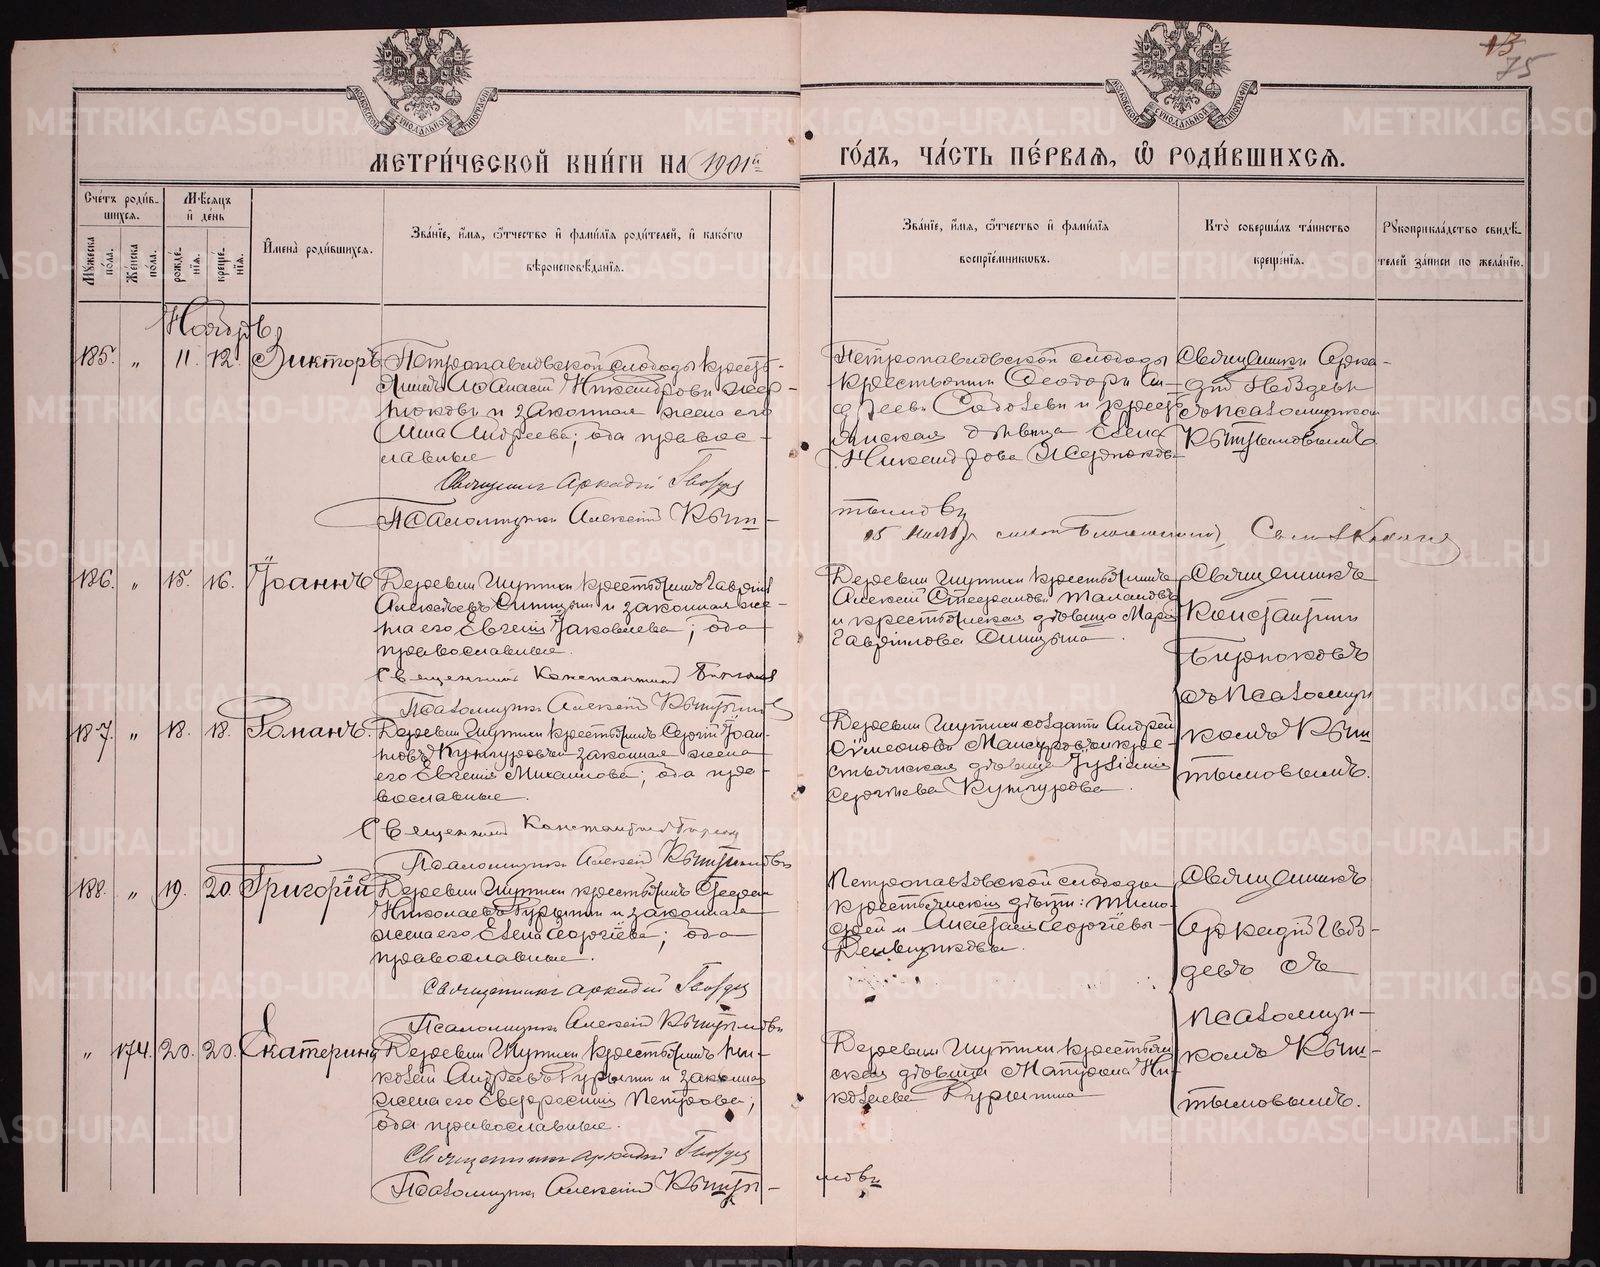 13
75
МОСКОВСКОЙ СѴНОДАЛЬНОЙ ТИПОГРАФІИ
МОСКОВСКОЙ СѴНОДАЛЬНОЙ ТИПОГРАФІИ
МЕТРИ́ЧЕСКОЙ КНИ́ГИ НА 1901й ГО́ДЪ, ЧА́СТЬ ПЕ́РВАЯ, Ѽ РОДИ́ВШИХСЯ.
Сче́тъ роди́в-
шихся.
Му́жеска по́ла.
Же́нска по́ла.
Мѣ́сяцъ
и҆ де́нь
рожде́-
нїя.
креще́-
нїя.
И҆мена̀ роди́вшихся.
Зва́нїе, и҆́мя, ѻ҆́тчество и҆ фами́лїя роди́телей, и҆ како́гѡ
вѣроисповѣ́данїя.
Зва́нїе, и҆́мя, ѻ҆́тчество и҆ фами́лїя
воспрїе́мникѡвъ.
Кто̀ соверша́лъ та́инство
креще́нїя.
Рꙋкоприкла́дство свидѣ́-
телей за́писи по жела́нїю.
Ноябрь
185. „ 11. 12. Викторъ
Петропавловской слободы кресть-
янинъ Аѳанасій Никандровъ
и законная жена его
Анна Андреева; оба правос-
лавные
Священникъ Аркадій Гвоздевъ
Псаломщикъ Алексій Кыш-
Петропавловской слободы
крестьянинъ Ѳеодоръ Ан-
дреевъ и кресть-
янская дѣвица Елена
Никандрова
Священникъ Арка-
дій Гвоздевъ
съ псаломщикомъ
Кыштымовымъ
тымовъ
15 Ноября
186. „ 15. 16. Іоаннъ
Деревни Шутихи крестьянинъ Гавріилъ
Алексѣевъ Синицынъ и законная же-
на его Евгенія Іаковлева; оба
православные.
Священникъ Константинъ Бирюковъ
Псаломщикъ Алексій Кыштымовъ
Деревни Шутихи крестьянинъ
Алексій Стефановъ Талановъ
и крестьянская дѣвица Марія
Гавріилова Синицына.
Священникъ
Константинъ
Бирюковъ
съ псаломщи-
комъ Кыш-
тымовымъ.
187. „ 18. 18. Романъ.
Деревни Шутихи крестьянинъ Сергій Іоан-
новъ Кунгуровъ и законная жена
его Евгенія Михаилова; оба пра-
вославные.
Священникъ Константинъ Бирюковъ
Псаломщикъ Алексій Кыштымовъ
Деревни Шутихи солдатъ Андрей
Сѵмеоновъ Мансуровъ и кре-
стьянская дѣвица Іуліанія
Сергіева Кунгурова.
188. „ 19. 20. Григорій
Деревни Шутихи крестьянинъ Стефанъ
Николаевъ Гурьинъ и законная
жена его Елена Георгіева; оба
православные.
Священникъ Аркадій Гвоздевъ
Псаломщикъ Алексій Кыштымовъ
Петропавловской слободы
крестьянскія дѣти: Тимо-
ѳей и Анастасія Георгіевы
Священникъ
Аркадій Гвоз-
девъ съ
псаломщи-
комъ Кыш-
тымовымъ.
„ 174. 20. 20. Екатерина
Деревни Шутихи крестьянинъ Ни-
колай Андреевъ Гурьинъ и законная
жена его Евфросинія Петрова;
оба православные.
Священникъ Аркадій Гвоздевъ
Псаломщикъ Алексій Кышты-
Деревни Шутихи крестьян-
ская дѣвица Матрона Ни-
колаева Гурьина
мовъ